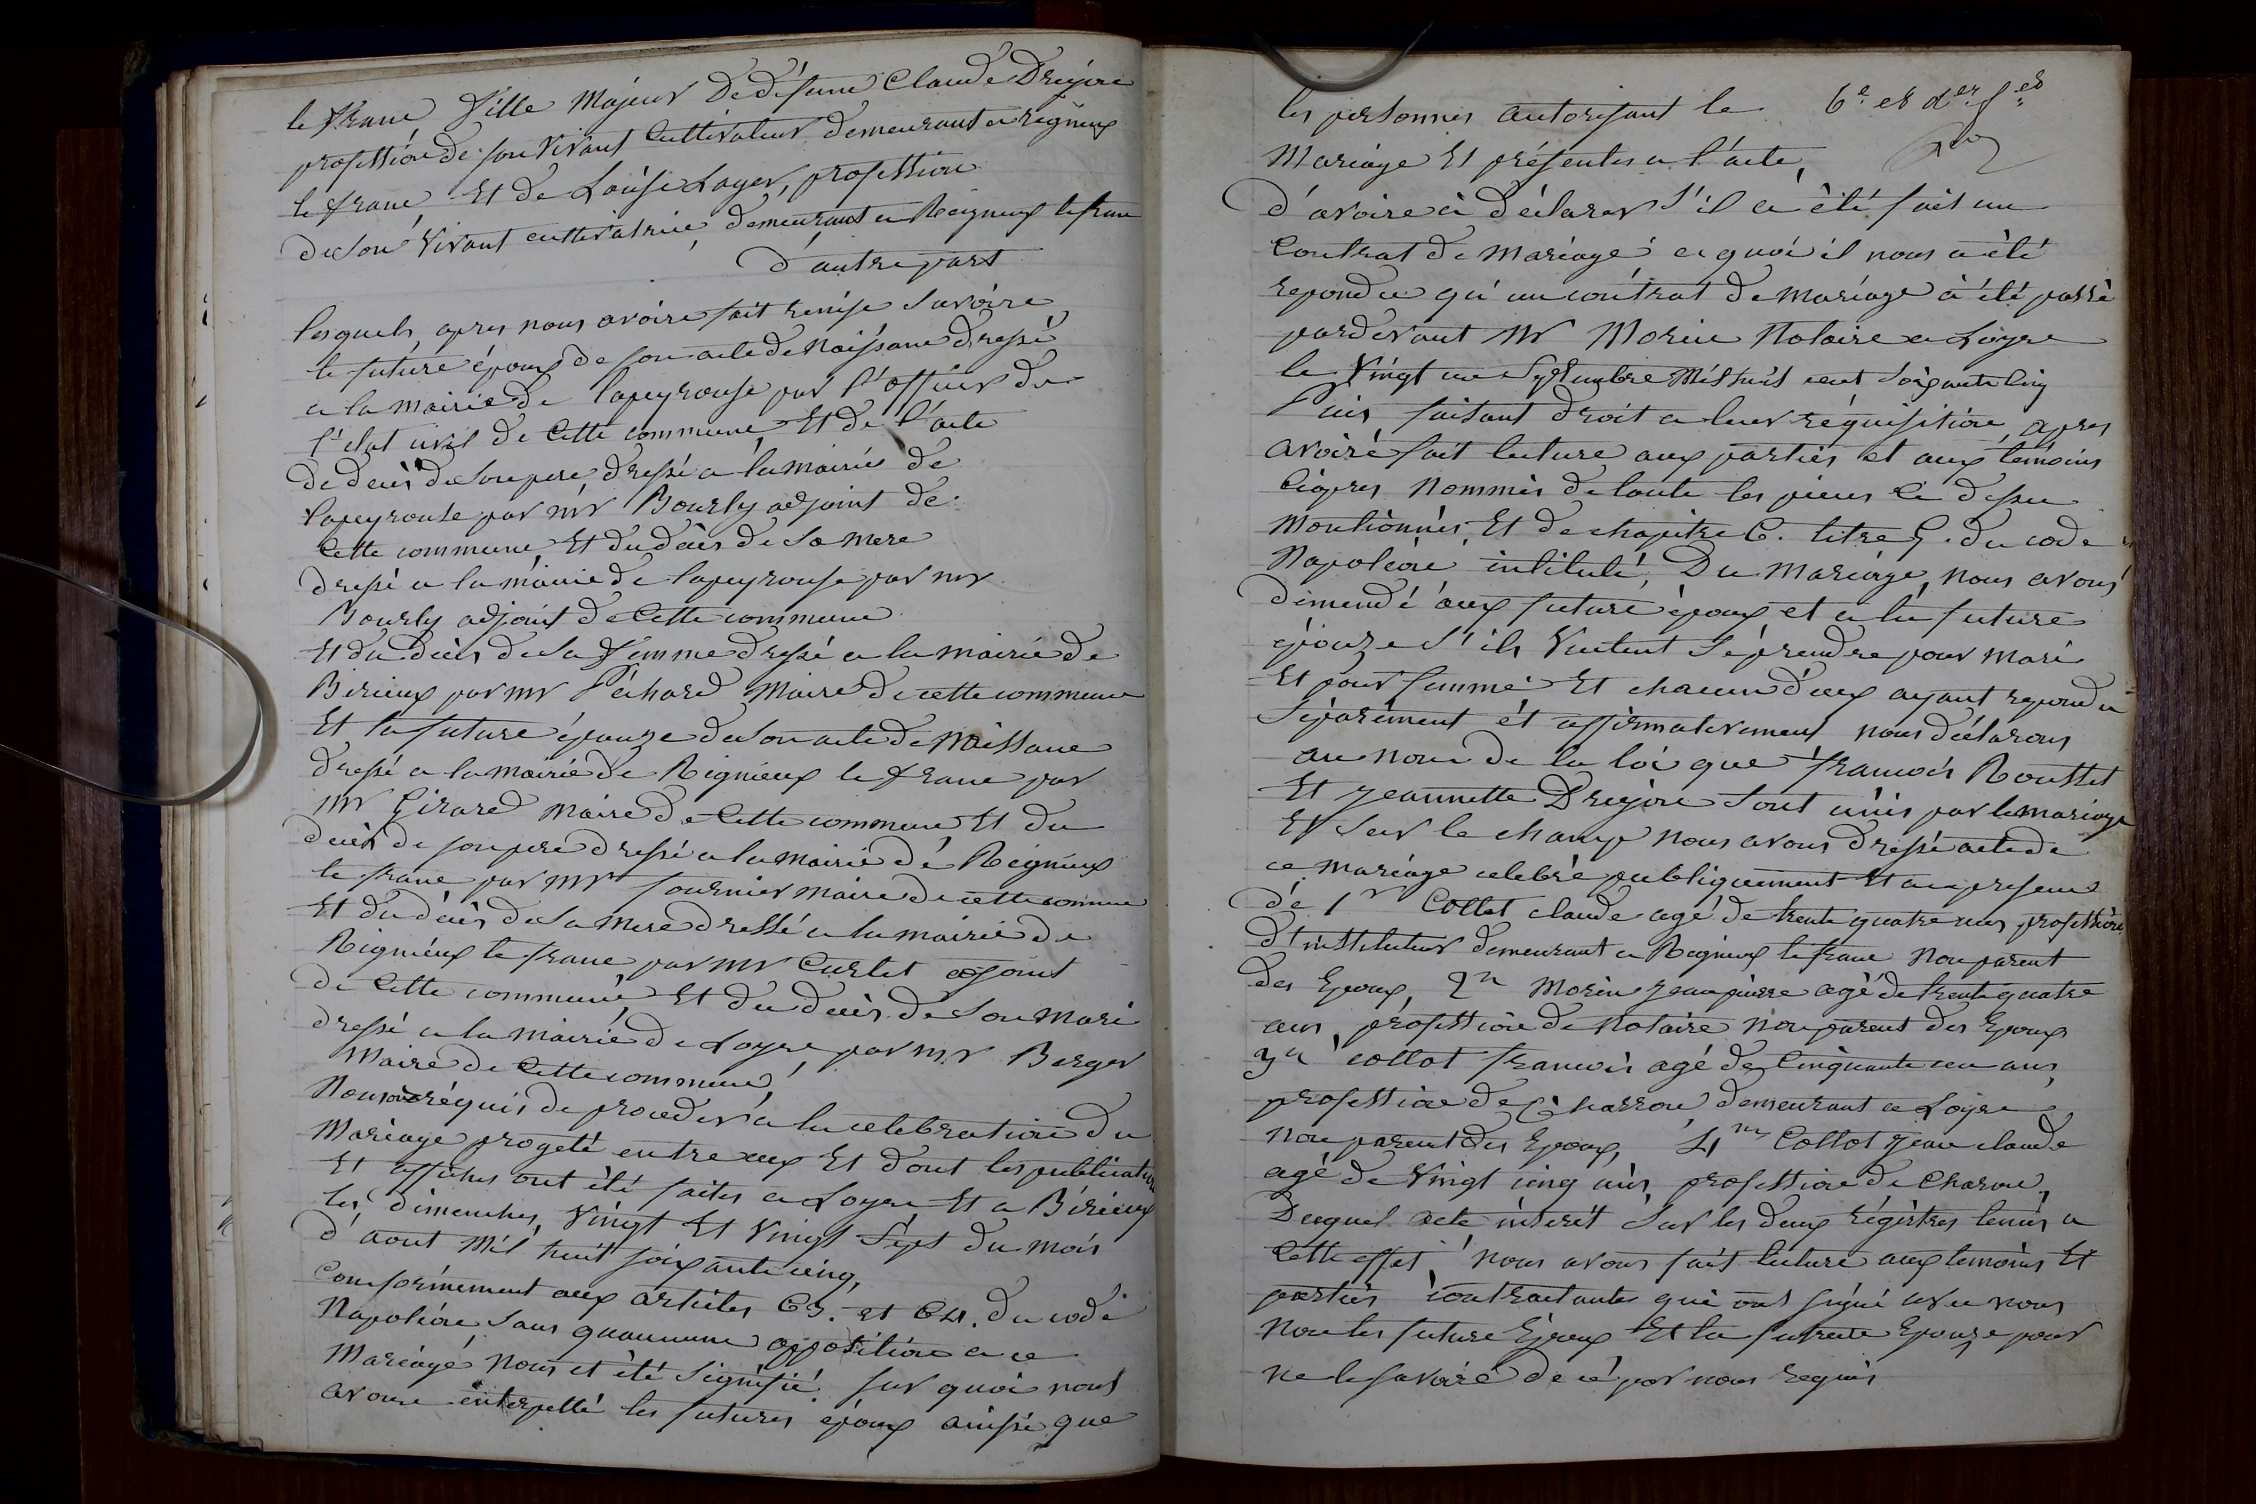 le franc fille Majeur De défunt Claude Dregère
profession de son vivant Cultivateur demeurant a rignieux
le franc Et de Louise Layer, profession
de son Vivant cultivatrice, demeurant a Reignieux le franc
d'autre part
lesquels, apres nous avoire fait remise Savoire
le future époux de son acte de Naissance dressé
a la Mairie de lapeyrouse par l'officier de
l'état civil de Cette commune Et de l'acte
de décès de son pere dressé a la mairie de
lapeyrouse par mr Bourly adjoint de
Cette commune, Et du décès de Sa Mere
dressé a la mairie de lapeyrouse par mr
Bourly adjoint de Cette commune
Et du décès de Sa femme dressé a la mairie de
Birieux par mr Péchard Maire de cette commune
Et la future épouze de Son acte de Naissance
dressé a la mairie de Rignieux le franc par
mr Girard Maire de Cette commune Et du
décès de son pere dressé a la Mairie de Reignieux
le franc par mr fournier maire de cette commune
Et du décès de Sa Mere dressé a la mairie de
Rignieux le franc par mr Curlet adjoint
de Cette commune, Et du décès de Son Mari
dressé a la mairie de Loyes par mr Berger
Maire de Cette commune,
Nous on réquis de proceder a la celebration du
Mariage progeté entre eux Et dont les publications
Et affiches ont été faites a Loyes Et a Birieux
les Dimanches Vingt Et Vingt Sept du mois
d'aout Mil huit soixante cinq,
Conformement aux articles 63. et 64. du code
Napoléon, Sans quaucune opposition a ce
Mariage Nous et été Signifié. Sur quoi nous
avons interpellé les futures époux ainssi que
les personnes autorisant le 6e et der fet
Mariage Et présentes a l'acte,
d'avoire a déclarer S'il a été fait un
Contrat de Mariage a quoi il nous a été
repondu qu'un contrat de Mariage a été passé
pardevant Mr Morin Notaire a Loyes
le Vingt un Septembre Mil huit cent Soixante Cinq
Puis faisant droit a leur réquisition, apres
avoire fait lecture aux parties et aux témoins
Ciapres Nommés de toute les pieces Ci dessu
Montionnés, Et de chapitre 6. titre 5. du code
Napoléon intitulé, Du Mariage, nous avons
demendé aux future époux et a la future
épouze S'ils Veulent Se prendre pour Mari
Et pour femme Et chacun d'eux ayant repondu
Séparément et affirmativement nous déclarons
au nom de la loi que francois Rousset
Et Jeannette Dregère Sont unis par le mariage
Et Sur le champ Nous avons dressé acte de
ce mariage celebré publiquement Et au presence
de 1r Collet claude agé de trente quatre ans, profession
d'instituteur demeurant a Regnieux le franc Non parent
des Epoux, 2m Morin Jean pierre agé de trente quatre
ans, profession de Notaire Non parent des Epoux
3m Collot francois agé de Cinquante un ans,
profession de Charron demeurant a Loyes
Non parent des Epoux, 4m Collot Jean claude
agé de Vingt cinq ans, profession de Charon,
Duquel acte inscrit Sur les deux régistres tenus a
Cette effet, Nous avons fait lecture aux temoins Et
parties contractantes qui ont signé avec nous
Non les future Epoux Et la future Epouze pour
ne le savoire de cé par nous requis